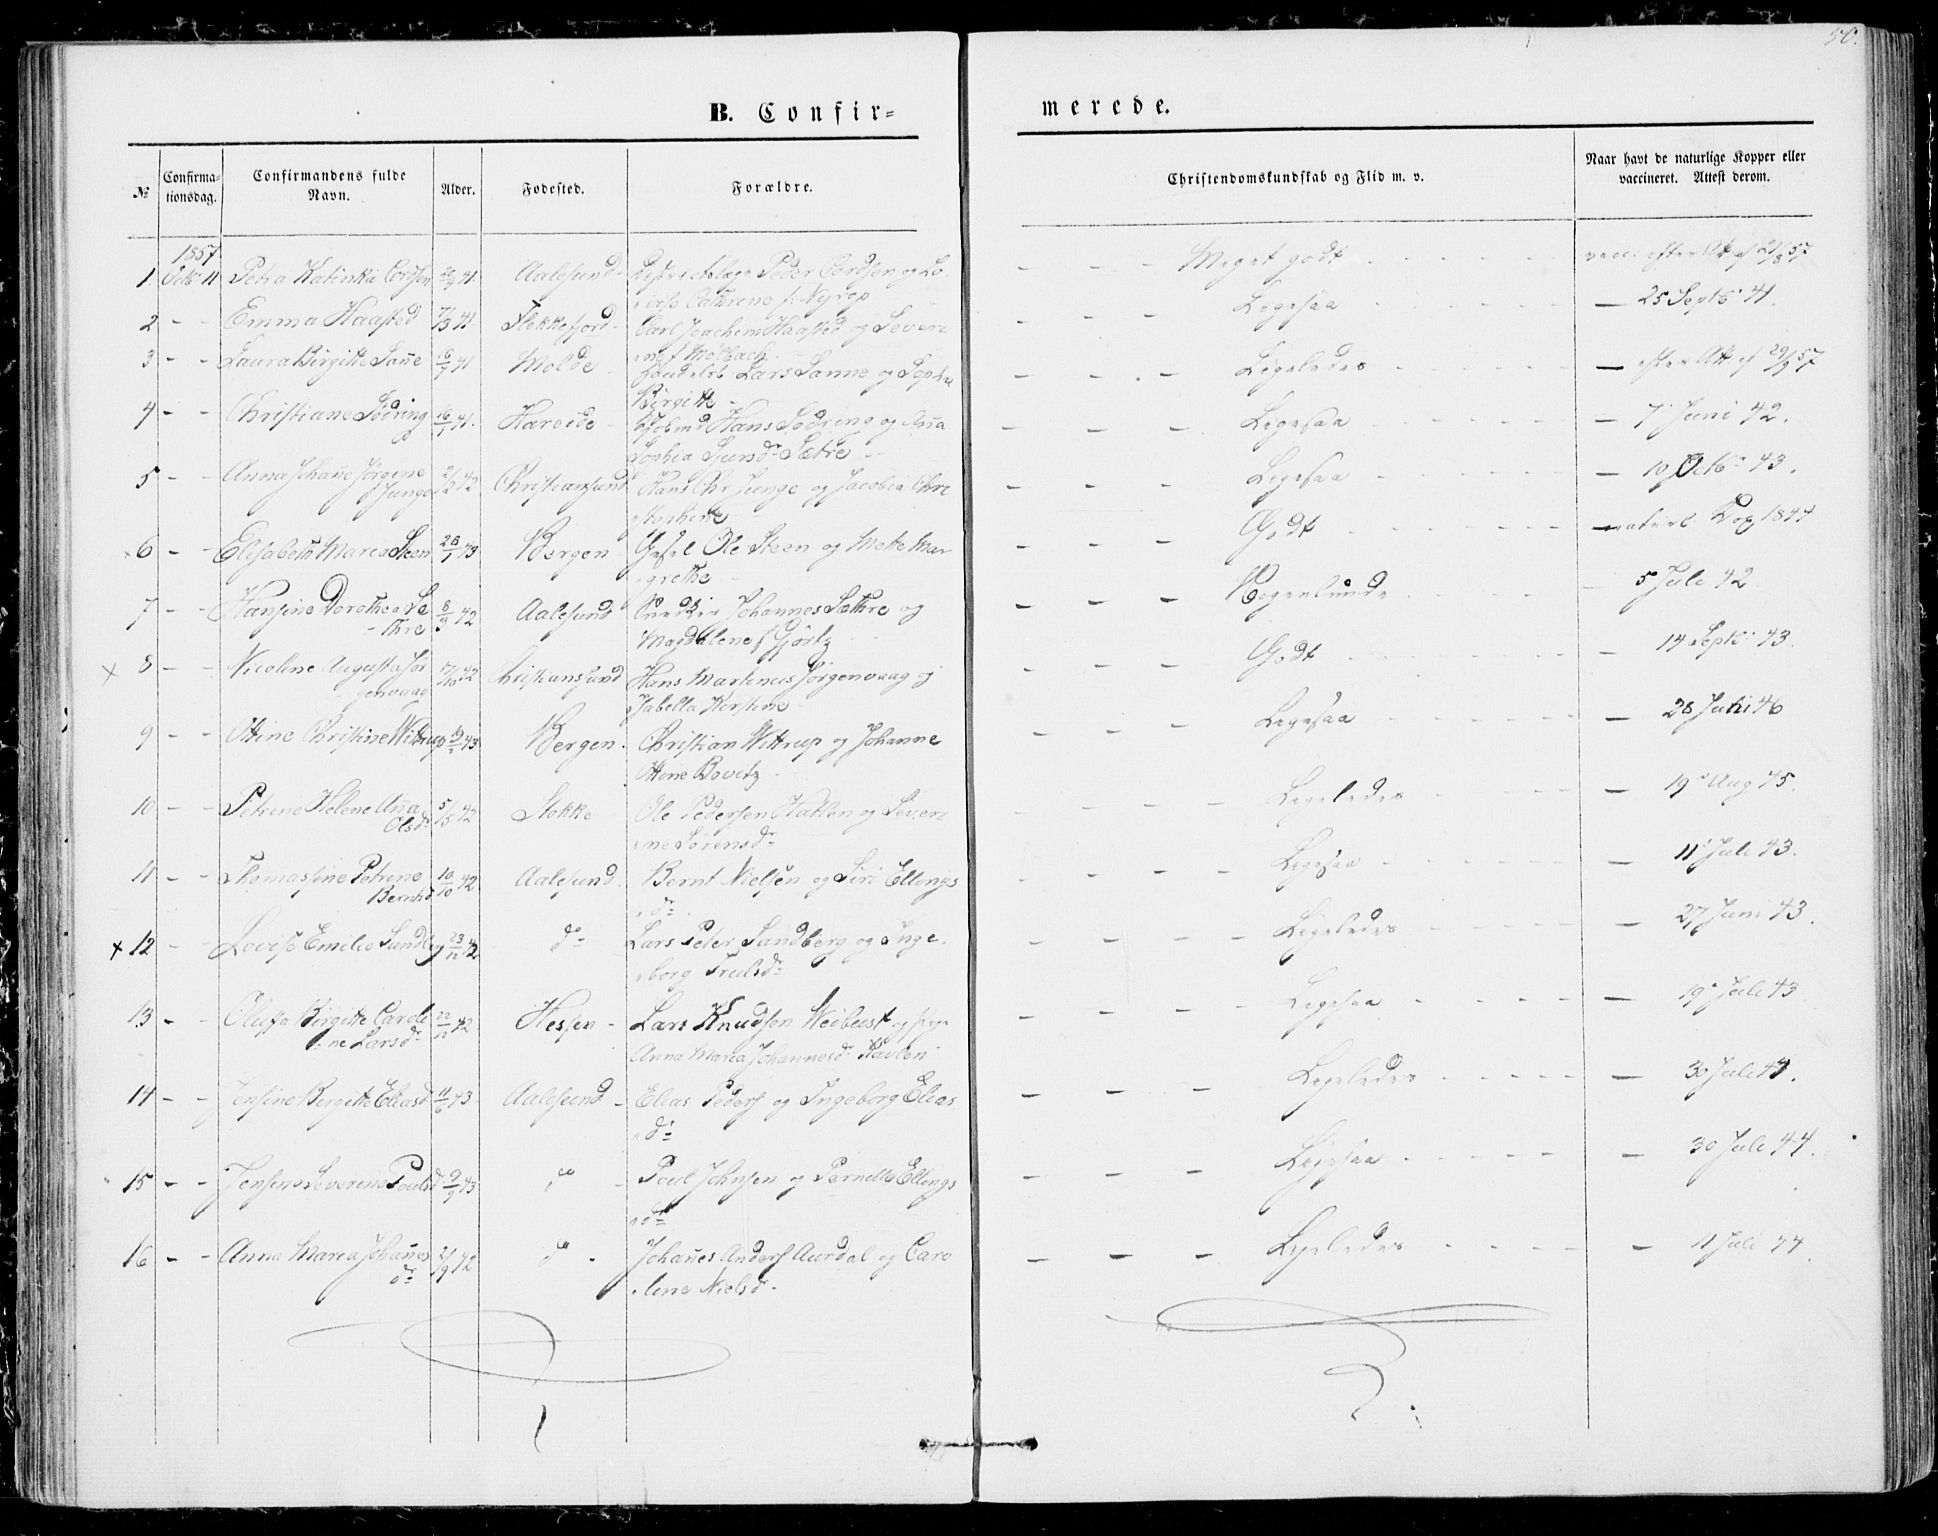 50.
B. Confir=
merede.
№
Confirma-
tionsdag.
Confirmandens fulde
Navn.
Alder.
Fødested.
Forældre.
Christendomskundskab og Flid m. v.
Naar havt de naturlige Kopper eller
vaccineret. Attest derom.
1857
1 Octb 11 Petra Katinka Cordsen 41. Aalesund Peder Cordsen og Lo-
Cathrine f. Nyrop
Meget godt
vacc. efter Att af 21/8 57
2 - - Emma Haasted 7/3 41 Flekkefjord Carl Joachim Haasted og Severi
ne f Mølbach
Ligesaa — 25 Septb. 41.
3 - - Laura Birgitte Sañe 41 Molde Lars Sanne og Sophie
Birgitte
Ligeledes — efter Att af 29/9 57
4 - - Christiane Sødring 41. Hareide Hans Sødring og Aña
Sophia Sæter
Ligesaa — 7 Juni 42.
5 - - Anna Johañe Jørgine
Junge 42 Christiansund Hans Chr Junge og Jacobia Chri
Ligesaa — 10 Octb. 43.
6 - - Elisabeth Maria Steen 28/1 43 Bergen Ole Steen og Mette Mar
grethe
Godt naturl. Kop 1844
7 - - Hansine Dorothea Sæ
thre 8/3 42 Aalesund Johannes Sæthre og
Magdalene f Gjørtz
Nogenlunde 5 Juli 42
8 - - Nicoline Augusta Jør
genvaag 17/10 42 Christiansund Hans Martinus Jørgenvaag og
Isabella Kirstine
Godt — 14 Septb. 43.
9 - - Ottine Christine Wittrup 43 Bergen. Christian Wittrup og Johanne
Ottine Bovitz
Ligesaa — 28 Juni 46
10 - - Petrine Helene Aña
Olsd. 42 Stokke Ole Pedersen og Severi
ne Sørensd.
Ligeledes — 19 Aug 45.
11 - - Thomasine Petrine
Berntsd 10/10 42 Aalesund. Bernt Nielsen og Siri Ellings
d.
Ligesaa — 11 Juli 43.
12 - Lovise Emilie Sundberg 23/12 42 do Lars Peter Sandberg og Inge
borg Trulsd.
Ligeledes — 27 Juni 43.
13 - Oluffa Birgitte Caroli
ne Larsd. 22/12 42 Hessen Lars Knudsen Weibust og
Anna Maria Johannesd.
Ligesaa — 19 Juli 43
14 - - Jensine Birgitte Eliasd 11/6 43 Aalesund Elias Peders og Ingeborg Elias
d.
Ligeledes — 30 Juli 44.
15 - - Jensine Severine Paulsd 9/9 43 do Poul Johnsen og Pernille Ellings
d.
Ligesaa — 30 Juli 44.
16 - - Anna Maria Johañes
d. 42 do Johañes Anders Aurdal og Caro
line Nielsd.
Ligeledes — 11 Juli 44.